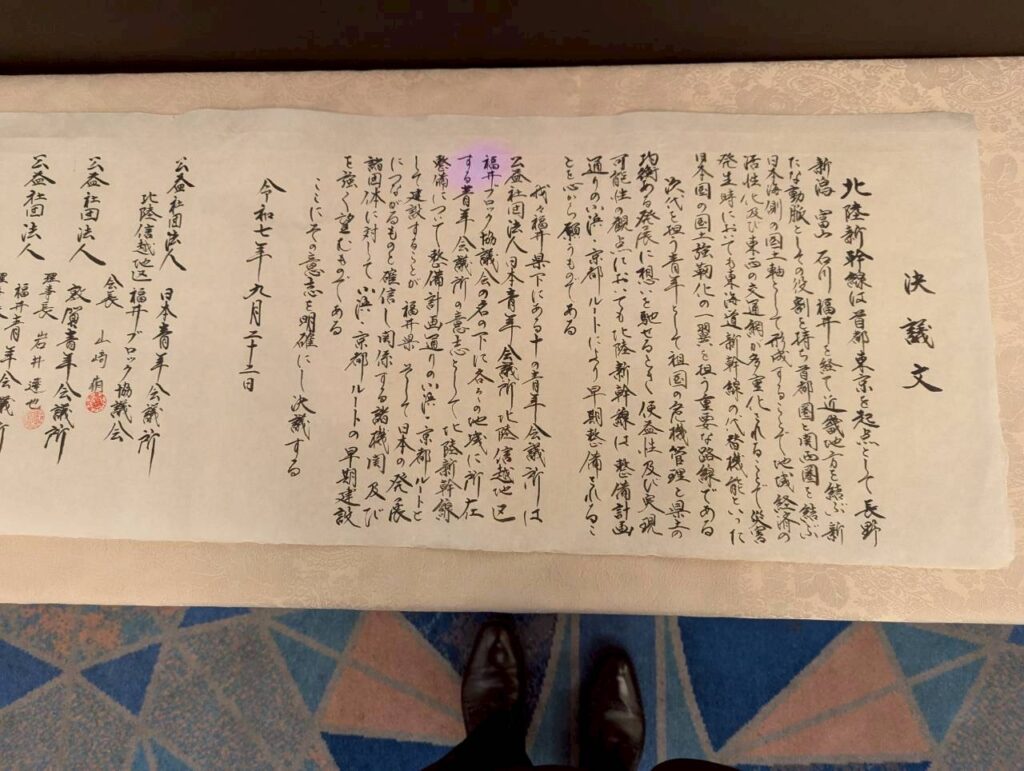 決議文
北陸新幹線は首都東京を起点として長野
新潟 富山 石川 福井を経て近畿地方を結ぶ新
たな動脈としてその役割を持ち首都圏と関西圏を結ぶ
日本海側の国土軸として形成することで地域経済の
活性化及び東西の交通網が多重化されることで災害
発生時においても東海道新幹線の代替機能といった
日本国の国土強靭化の一翼を担う重要な路線である
次代を担う青年として祖国の危機管理と県土の
均衡ある発展に想いを馳せるとき 便益性及び実現
可能性の観点においても北陸新幹線は整備計画
通りの小浜・京都ルートにより早期整備されるこ
とを心から願うものである
我々福井県下にある十の青年会議所は
公益社団法人日本青年会議所 北陸信越地区
福井ブロック協議会の名の下に各々の地域に所在
する青年会議所の意志として 北陸新幹線
整備について整備計画通りの小浜・京都ルートと
して建設することが 福井県 そして日本の発展
につながるものと確信し関係する諸機関及び
諸団体に対して 小浜・京都ルートの早期建設
を強く望むものである
ここにその意志を明確にし決議する
令和七年九月二十三日
公益社団法人 日本青年会議所
北陸信越地区 福井ブロック協議会
会長 山崎
公益社団法人 敦賀青年会議所
理事長 岩井 達也
公益社団法人 福井青年会議所
理事長